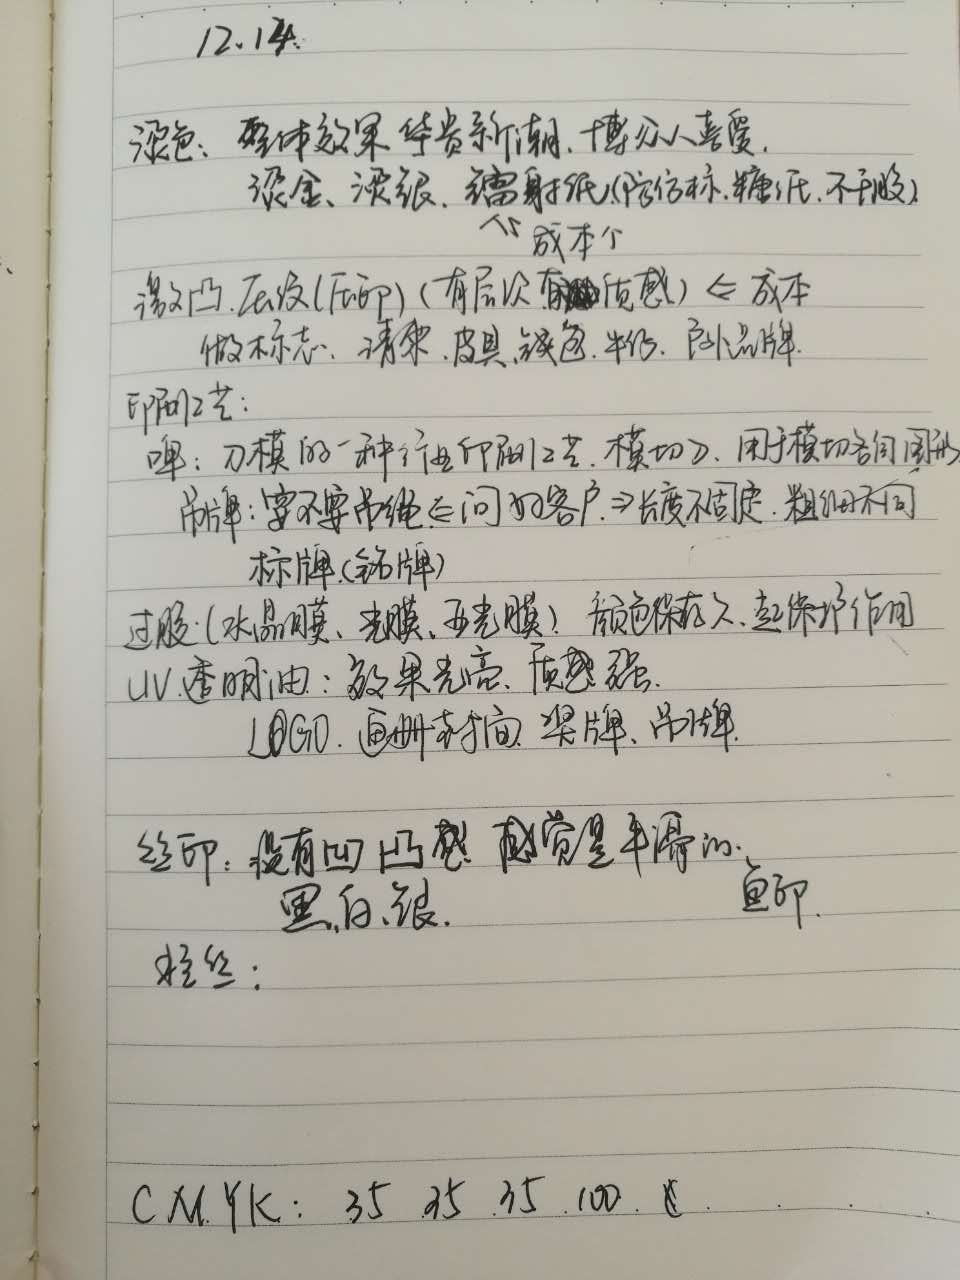 12.14.
烫色：整体效果华贵新潮、博众人喜爱.
烫金、烫银、镭射纸(防伪标.糖纸.不干胶)
成本个
激凸.压纹(压印)(有层次有质感)⇐成本
做标志、请柬.皮具.钱包.牛仔.户外品牌.
印刷工艺:
啤：刀模的一种行业印刷工艺.模切刀、用于模切各自图形
吊牌：要不要吊绳⇐问好客户.⇒长度不固定.粗细不同
标牌.(铭牌)
过胶(水晶膜、光膜、亚光膜)颜色保存久、起保护作用
UV.透明油：效果光亮、质感强.
LOGO.画册封面.奖牌、吊牌.
丝印：没有凹凸感 感觉是平滑的.
黑.白.银.
直印.
拉丝：
CMYK: 35 35 35 100